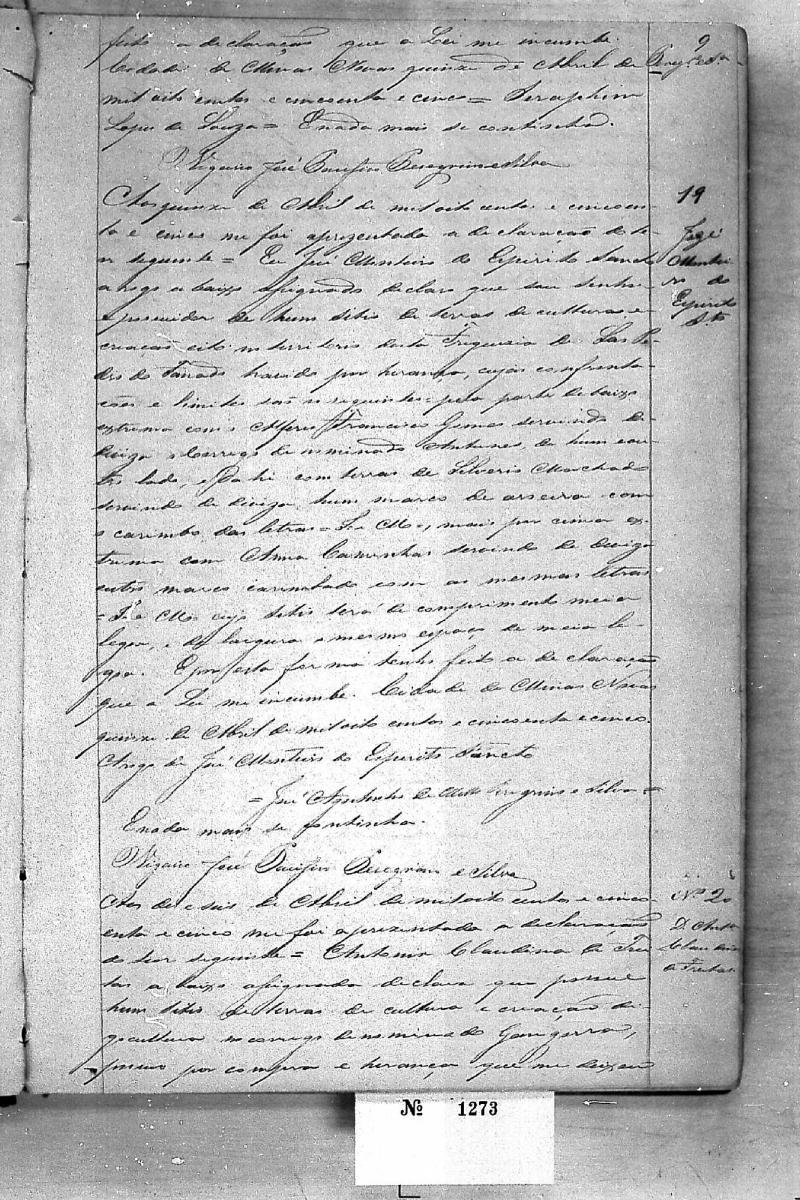 feito a declaração que a Lei me incumbe.
Cidade de Minas Novas quinze de Abril de
mil oito centos e cincoenta e cinco = Seraphim
Lopes de Souza = E nada mais se continha.
Vigario José Pacifico Peregrino e Silva
9
Peregr.º e S.ª
Aos quinze de Abril de mil oito centos e cincoen-
ta e cinco me foi aprezentada a declaração do te-
or seguinte = Eu José Monteiro do Espirito Sancto
a rogo a baixo assignado declaro que sou senhor
e possuidor de hum sitio de terras de culturas, e
creacao cito no territorio desta Freguesia de Sao Pe-
dro do Fanado havido por herança, cujas confronta-
cões e limites saõ os seguintes: pela parte de baixo
extrema com o Alferes Francisco Gomes servindo de
divisa o Corrego denominado Antunes, de hum e ou-
tro lado, e dahi com terras de Silverio Machado
servindo de diviza hum marco de aroeira com
o carimbo das letras = J. e M. =, mais por cima ex-
trema com Anna Caminhas servindo de diviza
outro marco carimbado com as mesmas letras
= J. e M. cujo sitio terá de comprimento meia
legoa, e de largura o mesmo espaço de meia le-
goa. E por esta forma tenho feito a declaração
que a Lei me incumbe. Cidade de Minas Novas
quinze de Abril de mil oito centos e cincoenta e cinco.
A rogo de José Monteiro do Espirito Sancto
= José Antonio de Mello Peregrino e Silva =
E nada mais se continha.
Vigario José Pacifico Peregrino e Silva
19
José
Montei-
ro do
Espirito
S.to
Aos deseseis de Abril de mil oito centos e cinco-
enta e cinco me foi apresentada a declaração
do teor seguinte = Antonia Claudina de Frei-
tas a baixo assignada declara que possue
hum sitio de terras de cultura e creação de
no corrego denominado Gangorra,
possuo por compra e herança que me deixou
Nº 20
D. Ant.ª
Claudina
de Freitas
Nº 1273